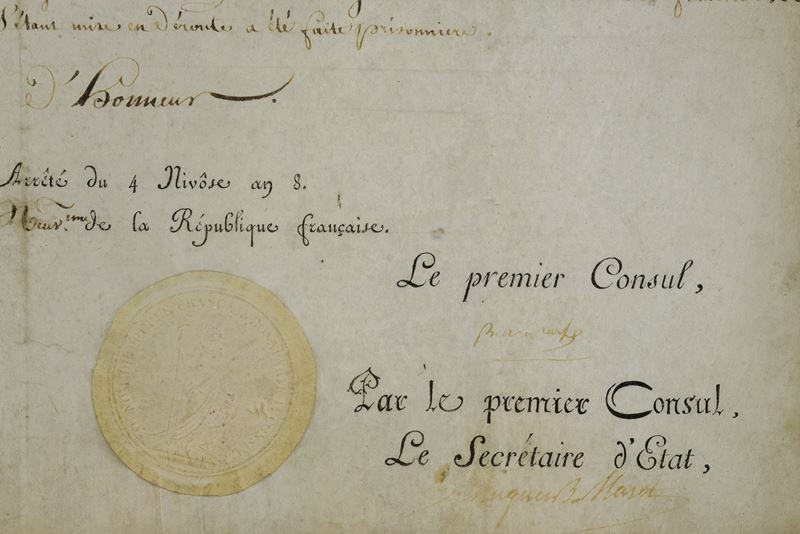 s'étant mise en déroute a été faite prisonniere.
d'honneur.
Arrêté du 4 Nivôse an 8.
Neuv.eme de la République française.
Le premier Consul,
Bonaparte
Par le premier Consul,
Le Secrétaire d'Etat,
Hugues B. Maret